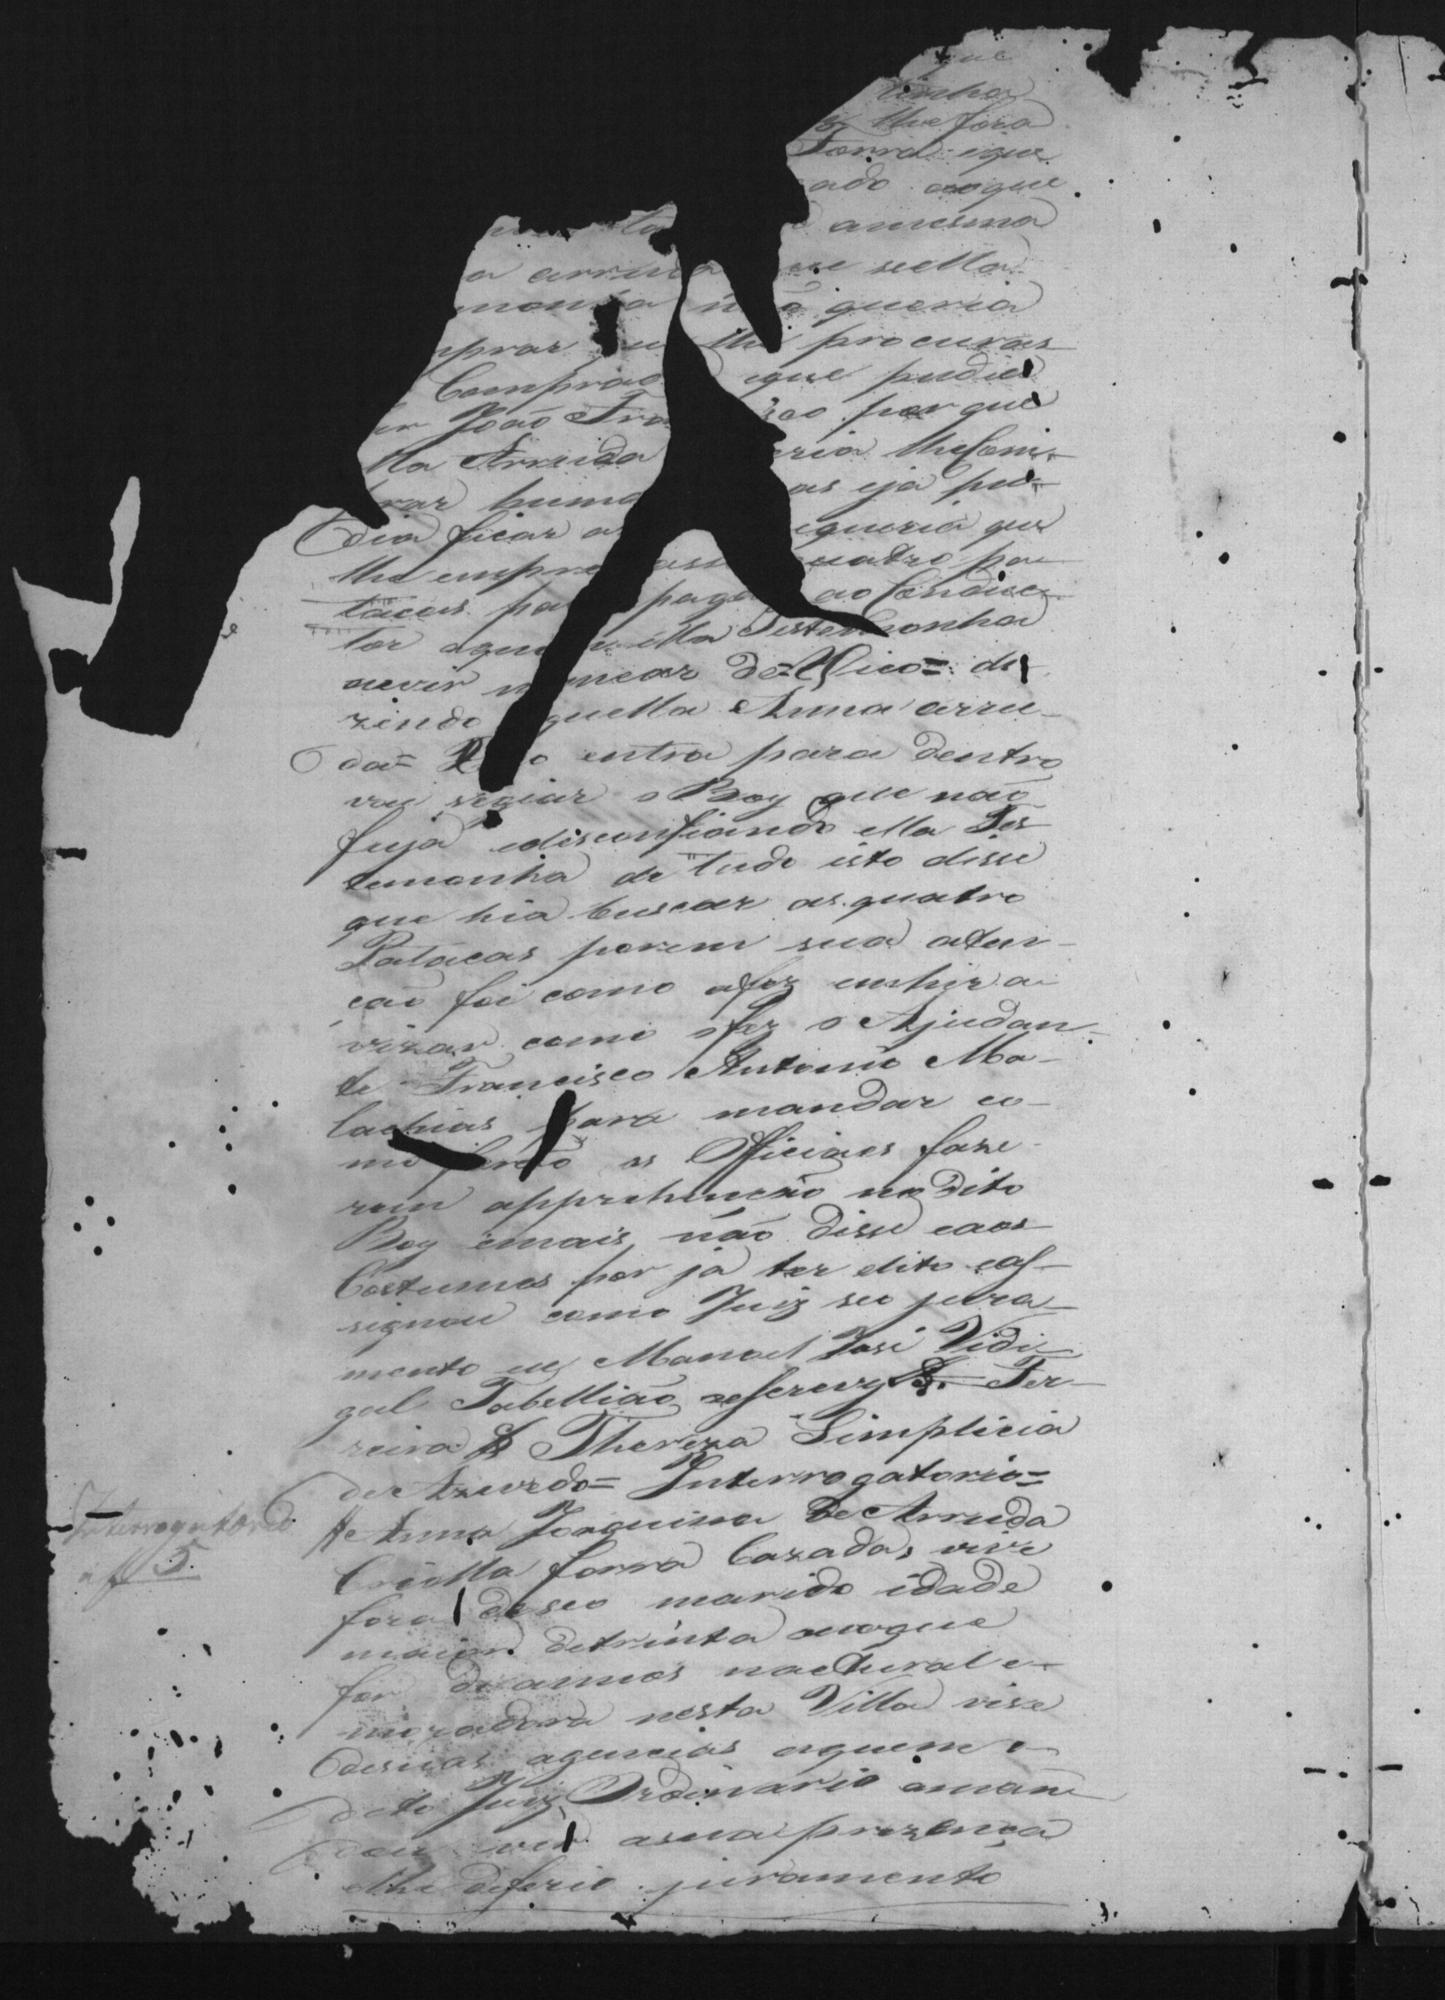 que
tinha
lhe fora
Forra eque
ado aoque
amesma
a arru que sella
monha não queria
mprar lhe procuras
Comprad que pudes
er João Fran sco porque
lla Arruda eria lhe Com
prar huma as eja po
dia ficar a equeria que
lhe empre asse quatro pa
tacas pa paga ao Conduc
tor aqu ella Testemonha
ouvir nomear de=Chico= di
zindo aquella Anna arru
da= entra para dentro
vou vegiar o Boy que não
fuja edisconfiando ella Tes
temonha de tudo isto disse
que hia buscar as quatro
Patacas porem sua aten
ção foi como a fez em hir a
vizar como o fez o Ajudan
te Francisco Antonio Ma
lachias para mandar co
mo forão os Officiaes faze
rem apprehenção no dito
Boy emais não disse eaos
Costumes por já ter dito eas
signou como Juiz seo jura
mento eu Manoel José Vidi
gal Tabellião oescrevy Fer
reira Thereza Simplicia
de Azevedo= Interrogatorio=
Interrogatorio
a f 5.
de Anna Joaquina de Arruda
Crioulla forra Cazada, vive
fora deseo marido idade
maior detrinta anoque
for de annos nactural e
moradora nesta Villa vive
desuas agencias aquem o
dito Juiz Ordinario aman
dou vir asua prezença
elhe deferio juramento